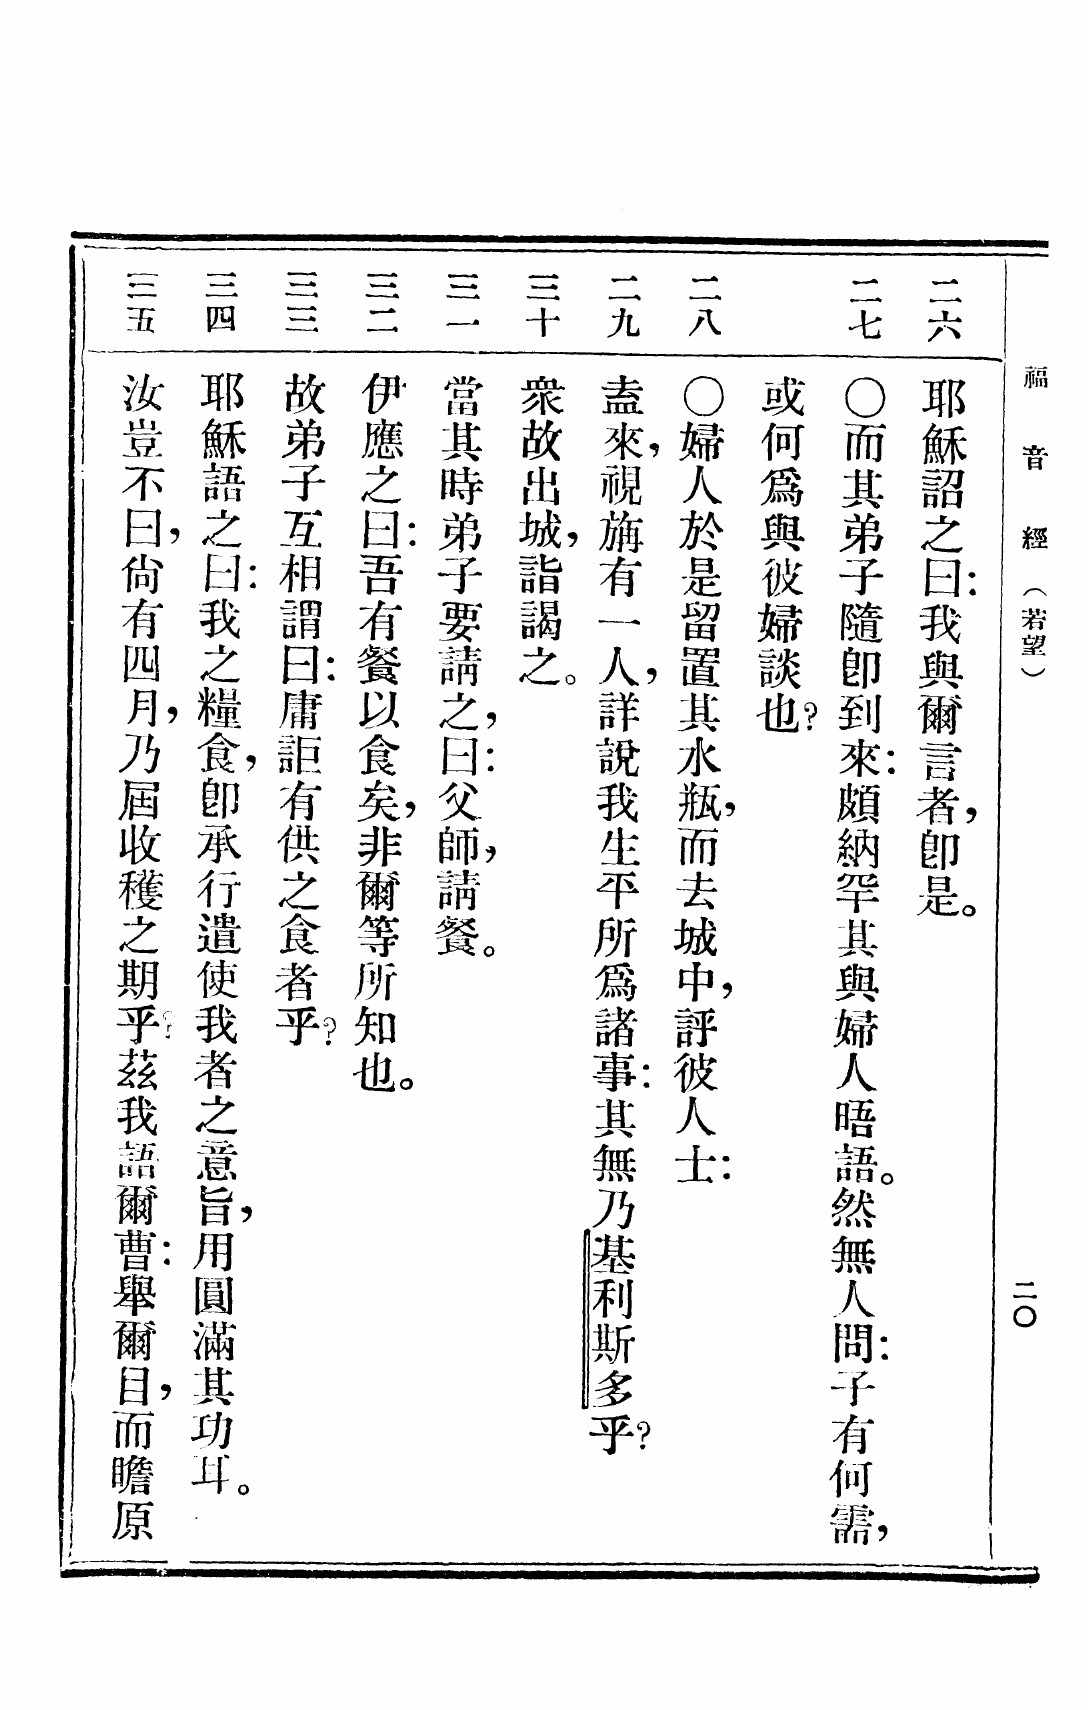 福音經（若望）
二〇
二六
耶穌詔之曰：我與爾言者，卽是。
二七
〇而其弟子隨卽到來：頗納罕其與婦人晤語。然無人問：子有何需，
或何爲與彼婦談也？
二八
〇婦人於是留置其水瓶，而去城中，評彼人士：
二九
盍來，視旃有一人，詳說我生平所爲諸事：其無乃基利斯多乎？
三十
衆故出城，詣謁之。
三一
當其時弟子要請之，曰：父師，請餐。
三二
伊應之曰：吾有餐以食矣，非爾等所知也。
三三
故弟子互相謂曰：庸詎有供之食者乎？
三四
耶穌語之曰：我之糧食，卽承行遣使我者之意旨，用圓滿其功耳。
三五
汝豈不曰，尙有四月，乃屆收穫之期乎？茲我語爾曹：舉爾目，而瞻原